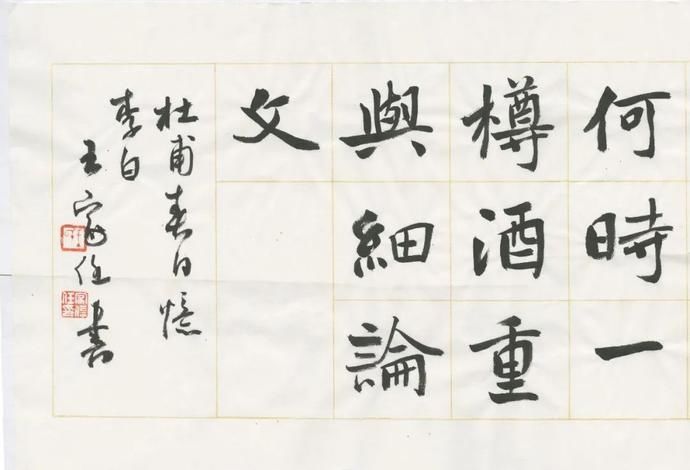 何時一
樽酒重
與細論
文
杜甫春日憶
李白
王家任書